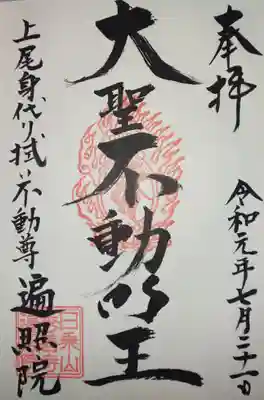 奉拝
令和元年七月二十一日
大聖不動明王
上尾身代り拭い不動尊
遍照院